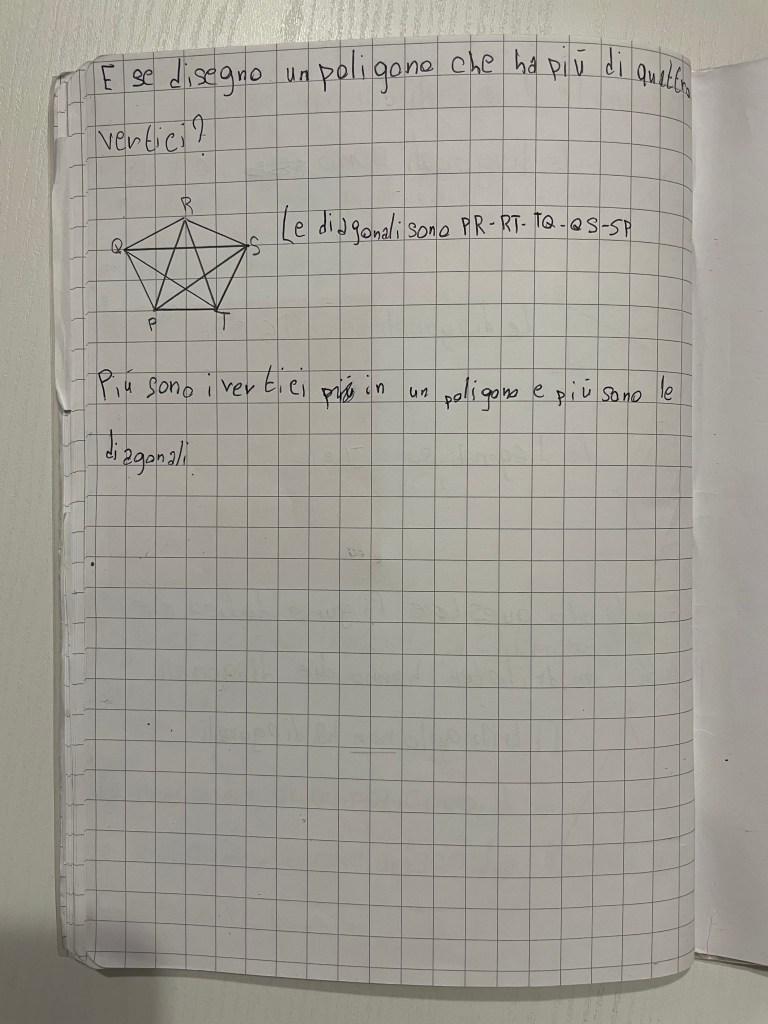 E se disegno un poligono che ha più di quattro
vertici?
R
Q
S
Le diagonali sono PR-RT-TQ-QS-SP
P
T
Più sono i vertici in un poligono e più sono le
diagonali.